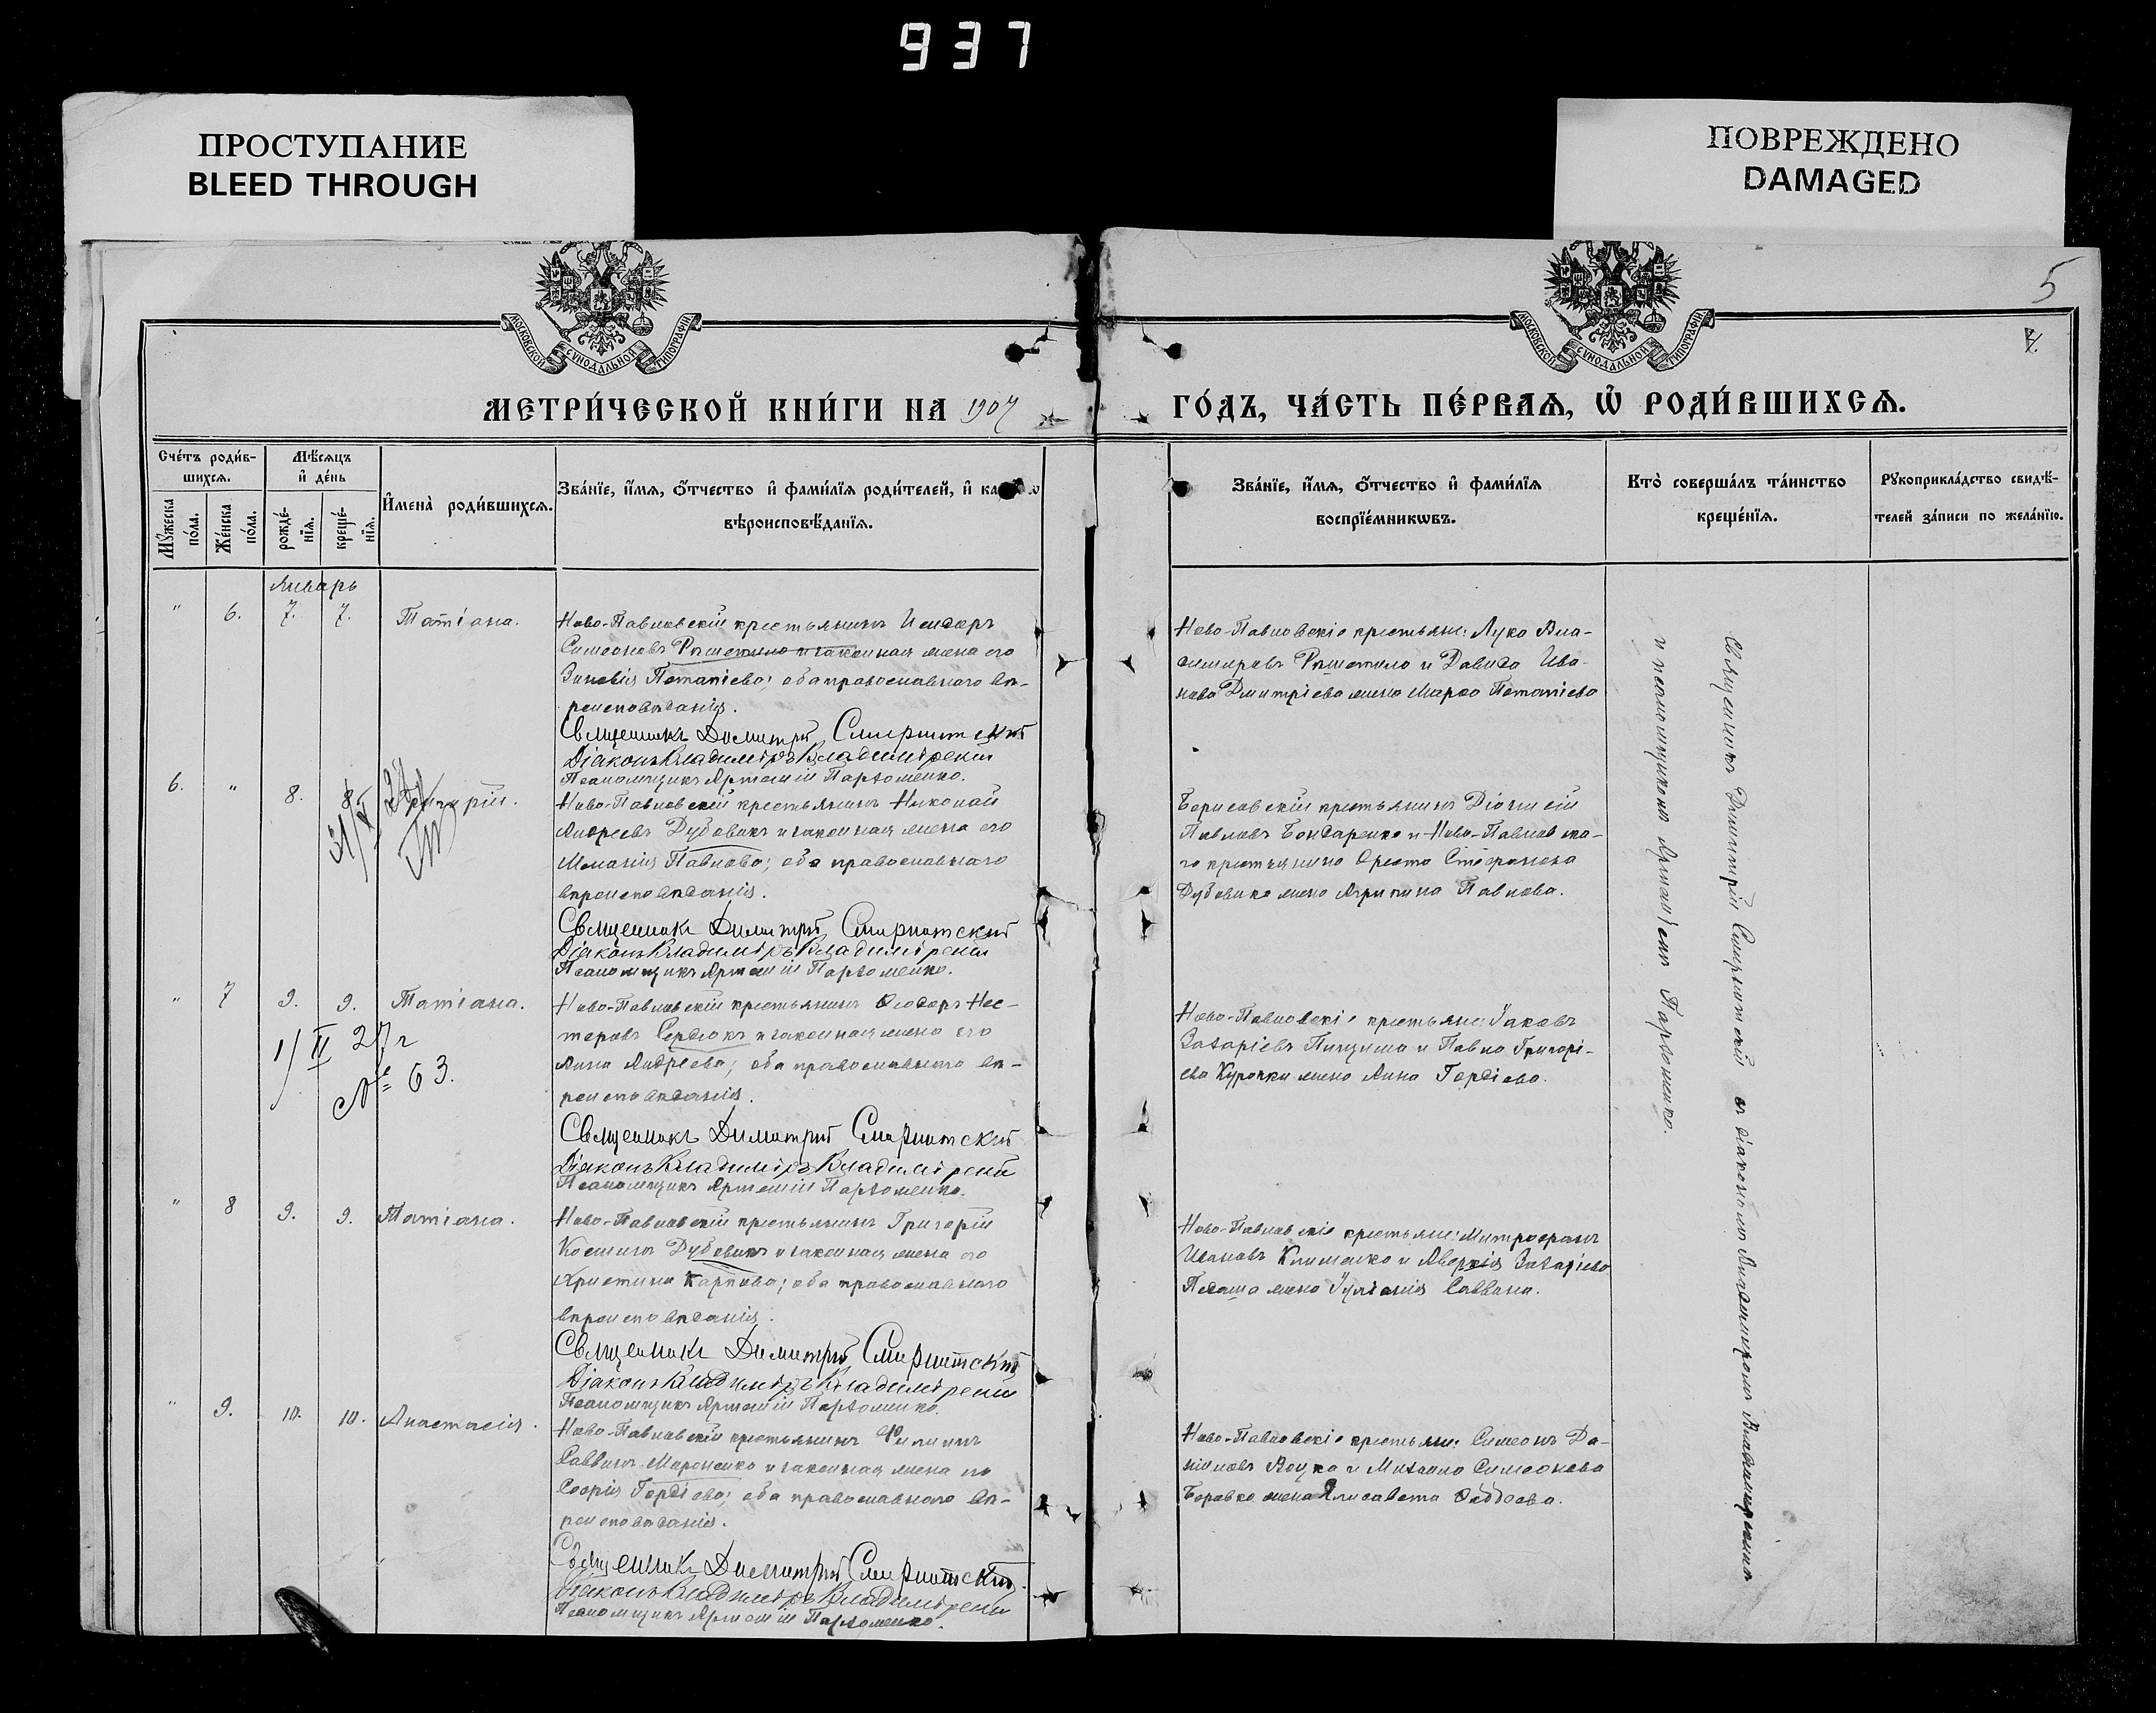 937
ПРОСТУПАНИЕ
BLEED THROUGH
ПОВРЕЖДЕНО
DAMAGED
МОСКОВСКОЙ СѴНОДАЛЬНОЙ ТИПОГРАФІИ
МОСКОВСКОЙ СѴНОДАЛЬНОЙ ТИПОГРАФІИ
5
4.
МЕТРИ́ЧЕСКОЙ КНИ́ГИ НА 1907
ГО́ДЪ, ЧА́СТЬ ПЕ́РВАѦ, Ѡ҆ РОДИ́ВШИХСѦ.
Сче́тъ роди́в-
шихсѧ.
Мꙋ́жеска по́ла.
Же́нска по́ла.
Мѣ́сѧцъ
и҆ де́нь
рожде́-
нїѧ.
креще́-
нїѧ.
И҆мена̀ роди́вшихсѧ.
Зва́нїе, и҆́мѧ, ѻ҆́тчество и҆ фами́лїѧ роди́телей, и҆
вѣроисповѣ́данїѧ.
Зва́нїе, и҆́мѧ, ѻ҆́тчество и҆ фами́лїѧ
воспрїе́мникѡвъ.
Кто̀ соверша́лъ та́инство
креще́нїѧ.
Рꙋкоприкла́дство свидѣ́-
телей за́писи по жела́нїю.
Январь
" 6. 7. 7. Татіана.
Ново-Павловскій крестьянинъ Исидоръ
Симеоновъ Рѣшетило и законная жена его
Зиновія Потапіева; оба православнаго вѣ-
роисповѣданія.
Священникъ Димитрій Смирнитскій
Діаконъ Владиміръ Владимірскій
Псаломщикъ Артемій Пархоменко.
Ново-Павловскіе крестьяне: Лука Вла-
диміровъ Рѣшетило и Давида Ива-
нова Дмитріева жена Марфа Потапіева
6. " 8. 8.
Ново-Павловскій крестьянинъ Николай
Андреевъ Дубовикъ и законная жена его
Меланія Павлова; оба православнаго
вѣроисповѣданія.
Священникъ Димитрій Смирнитскій
Діаконъ Владиміръ Владимірскій
Псаломщикъ Артемій Пархоменко.
Борисовскій крестьянинъ Діонисій
Павловъ Бондаренко и Ново-Павловска-
го крестьянина Ореста Стефанова
Дубовика жена Агрипина Павлова.
" 7 9. 9. Татіана.
1/II 27 г
№ 63.
Ново-Павловскій крестьянинъ Ѳеодоръ Нес-
теровъ Сердюкъ и законная жена его
Анна Андреева; оба православнаго вѣ-
роисповѣданія.
Священникъ Димитрій Смирнитскій
Діаконъ Владиміръ Владимірскій
Псаломщикъ Артемій Пархоменко.
Ново-Павловскіе крестьяне: Іаковъ
Захаріевъ Пищима и Павла Григорі-
ева Курочки жена Анна Гордіева.
" 8 9. 9. Татіана.
Ново-Павловскій крестьянинъ Григорій
Косминъ Дубовикъ и законная жена его
Христина Карпова; оба православнаго
вѣроисповѣданія.
Священникъ Димитрій Смирнитскій
Діаконъ Владиміръ Владимірскій
Псаломщикъ Артемій Пархоменко.
Ново-Павловскіе крестьяне: Митрофанъ
Ивановъ Клименко и Аверкія Захаріева
Педаша жена Іуліанія Саввина.
" 9. 10. 10. Анастасія.
Ново-Павловскій крестьянинъ Филиппъ
Саввинъ Мироненко и законная жена его
Софія Гордіева; оба православнаго вѣ-
роисповѣданія.
Священникъ Димитрій Смирнитскій
Діаконъ Владиміръ Владимірскій
Псаломщикъ Артемій Пархоменко.
Ново-Павловскіе крестьяне: Симеонъ Да-
ніиловъ Воцко и Михаила Симеонова
Боровко жена Елисавета Фаддеева.
Священникъ Димитрій Смирнитскій съ діакономъ Владиміромъ Владимірскимъ
и псаломщикомъ Артеміемъ Пархоменко.